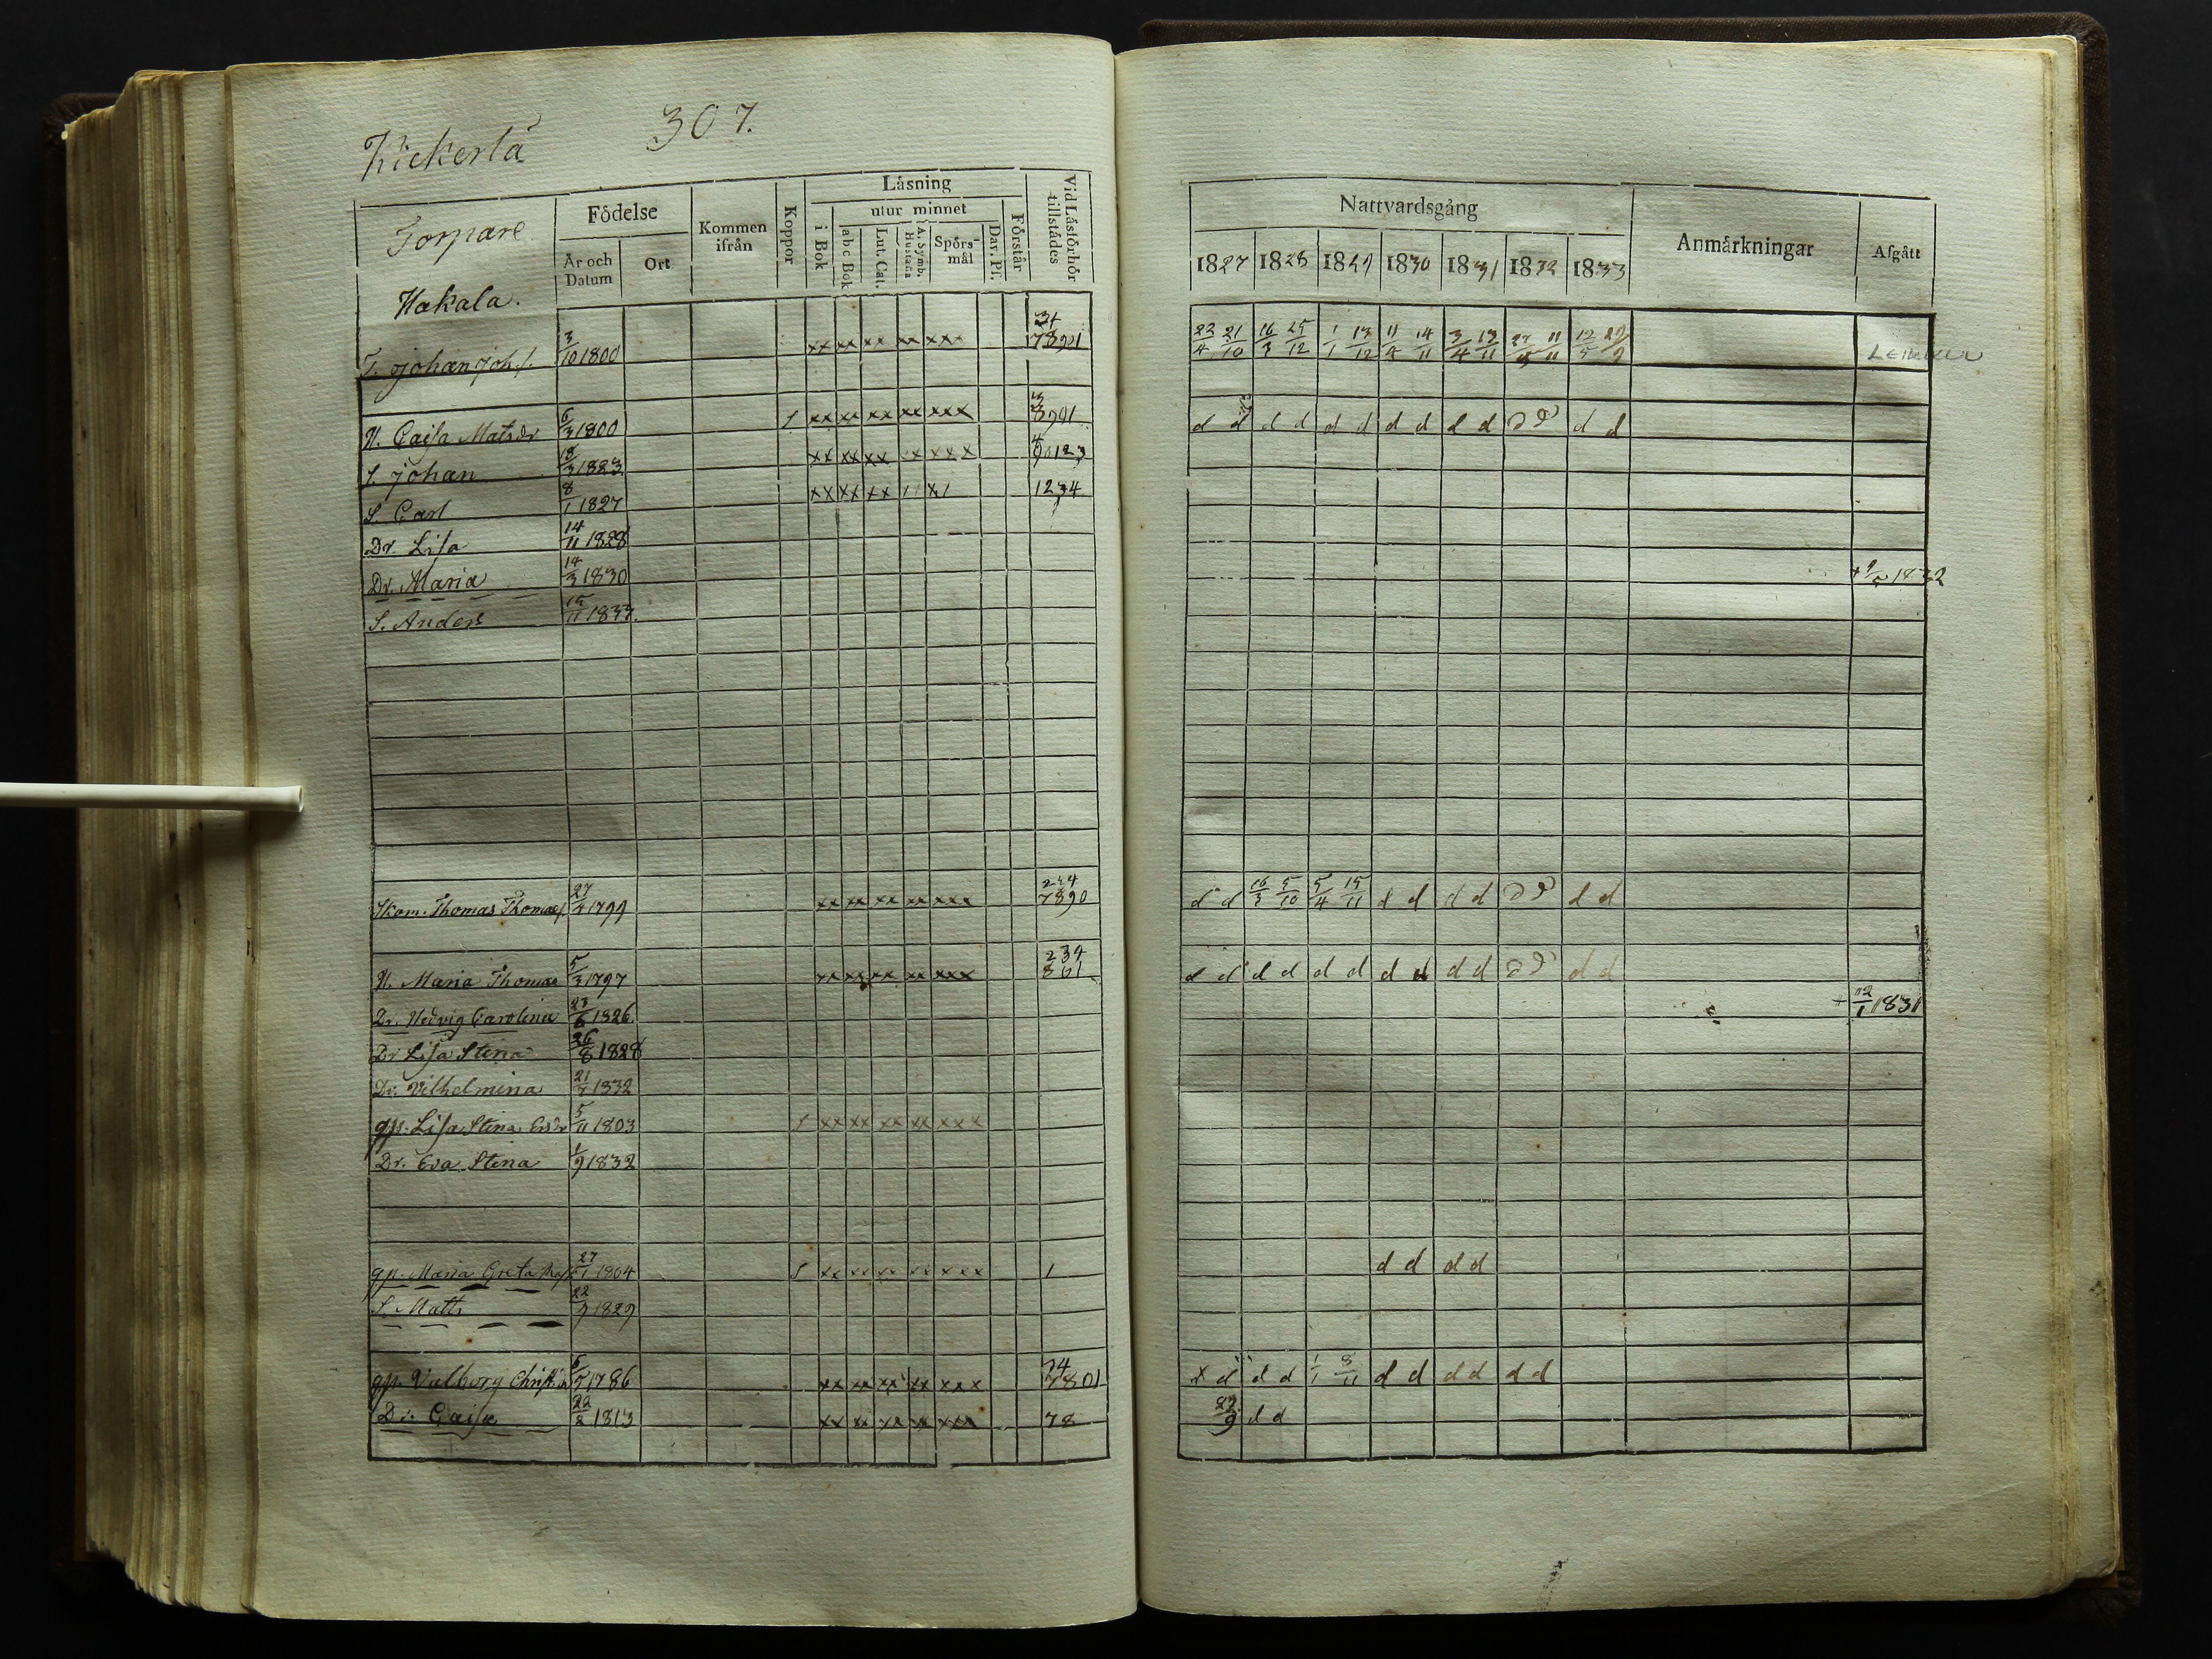 307.
Kickerlä
Torpare
Födelse
År och Datum
Ort
Kommen ifrån
Koppor
Läsning
i Bok
utur minnet
abc Bok
Lut. Cat.
A. Symb. Hustafla
Spörs-mål
Dav. Ps.
Förstår
Vid Läsförhör tillstådes
Nattvardsgång
1827 1828 1829 1830 1831 1832 1833
Anmärkningar
Afgått
Hakala.
T. Johan Joh.s. 3/10 1800 xx xx xx xx xxx 34 78901 22/4 21/10 16/3 25/12 1/1 13/12 11/4 14/11 3/4 13/11 11/11 12/5
H. Cajsa Matsdr 6/3 1800 / xx xx xx xx xxx 8901 d d d d d d d d d d d d d d
S. Johan 18/3 1823 xx xx xx xx xxx 4 90123
S. Carl 8/1 1827 xx xx xx // x/ 1234
Dr. Lisa 14/11 1828
Dr. Maria 14/3 1830 1832
S. Anders 15/11 1833.
Skom. Thomas Thomas. 27/4 1799 xx xx xx xx xxx 7890 d d 16/3 5/10 5/4 15/11 d d d d d d d d
H. Maria Thomae 5/3 1797 xx xx xx xx xxx 234 801 d d d d d d d d d d d d d d
Dr. Hedvig Carolina 23/6 1826 + 12/1 1831
Dr Lisa Stina 26/8 1828
Dr. Vilhelmina 21/7 1832
gp. Lisa Stina Ersdr 5/11 1803 / xx xx xx xx xxx
Dr. Eva Stina 1/9 1832
gp. Maria Greta 27/1 1804 / xx xx xx xx xxx 1 d d d d
S. Matts 22/9 1829
gp. Valborg Christ. 6/5 1786 xx xx xx xx xxx 34 7801 x d d d 1/1 8/11 d d d d d d
Dr. Caisa 22/2 1813 xx xx xx xx xxx 78 23/9 d d